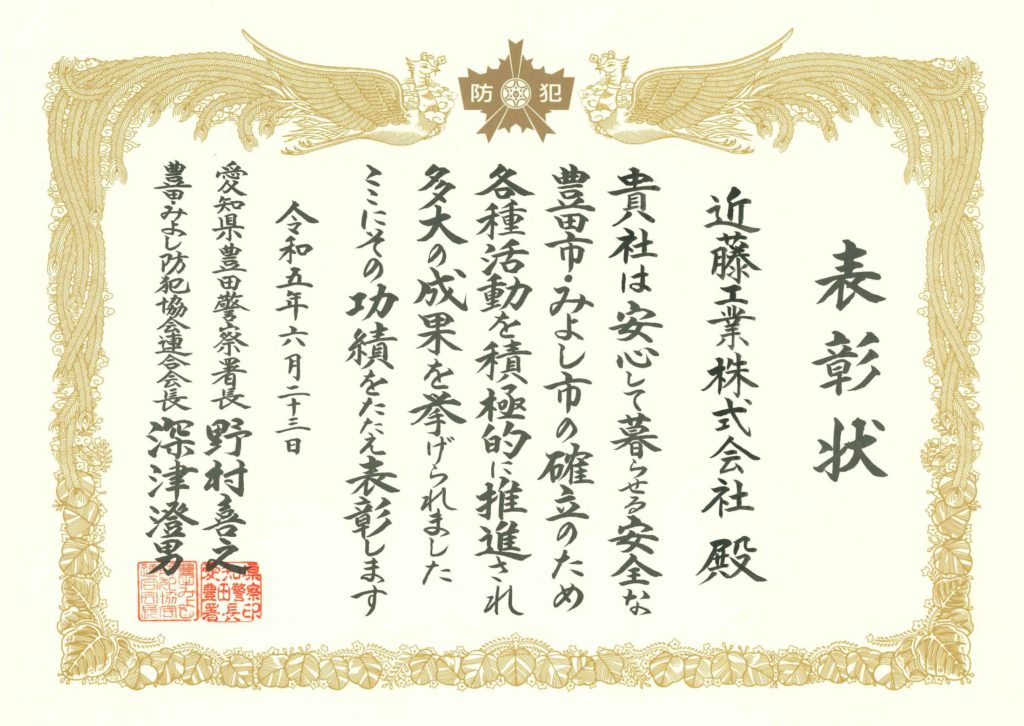 防犯
表彰状
近藤工業株式会社 殿
貴社は安心して暮らせる安全な
豊田市・みよし市の確立のため
各種活動を積極的に推進され
多大の成果を挙げられました
ここにその功績をたたえ表彰します
令和五年六月二十三日
愛知県豊田警察署長 野村善之
豊田・みよし防犯協会連合会長 深津澄男